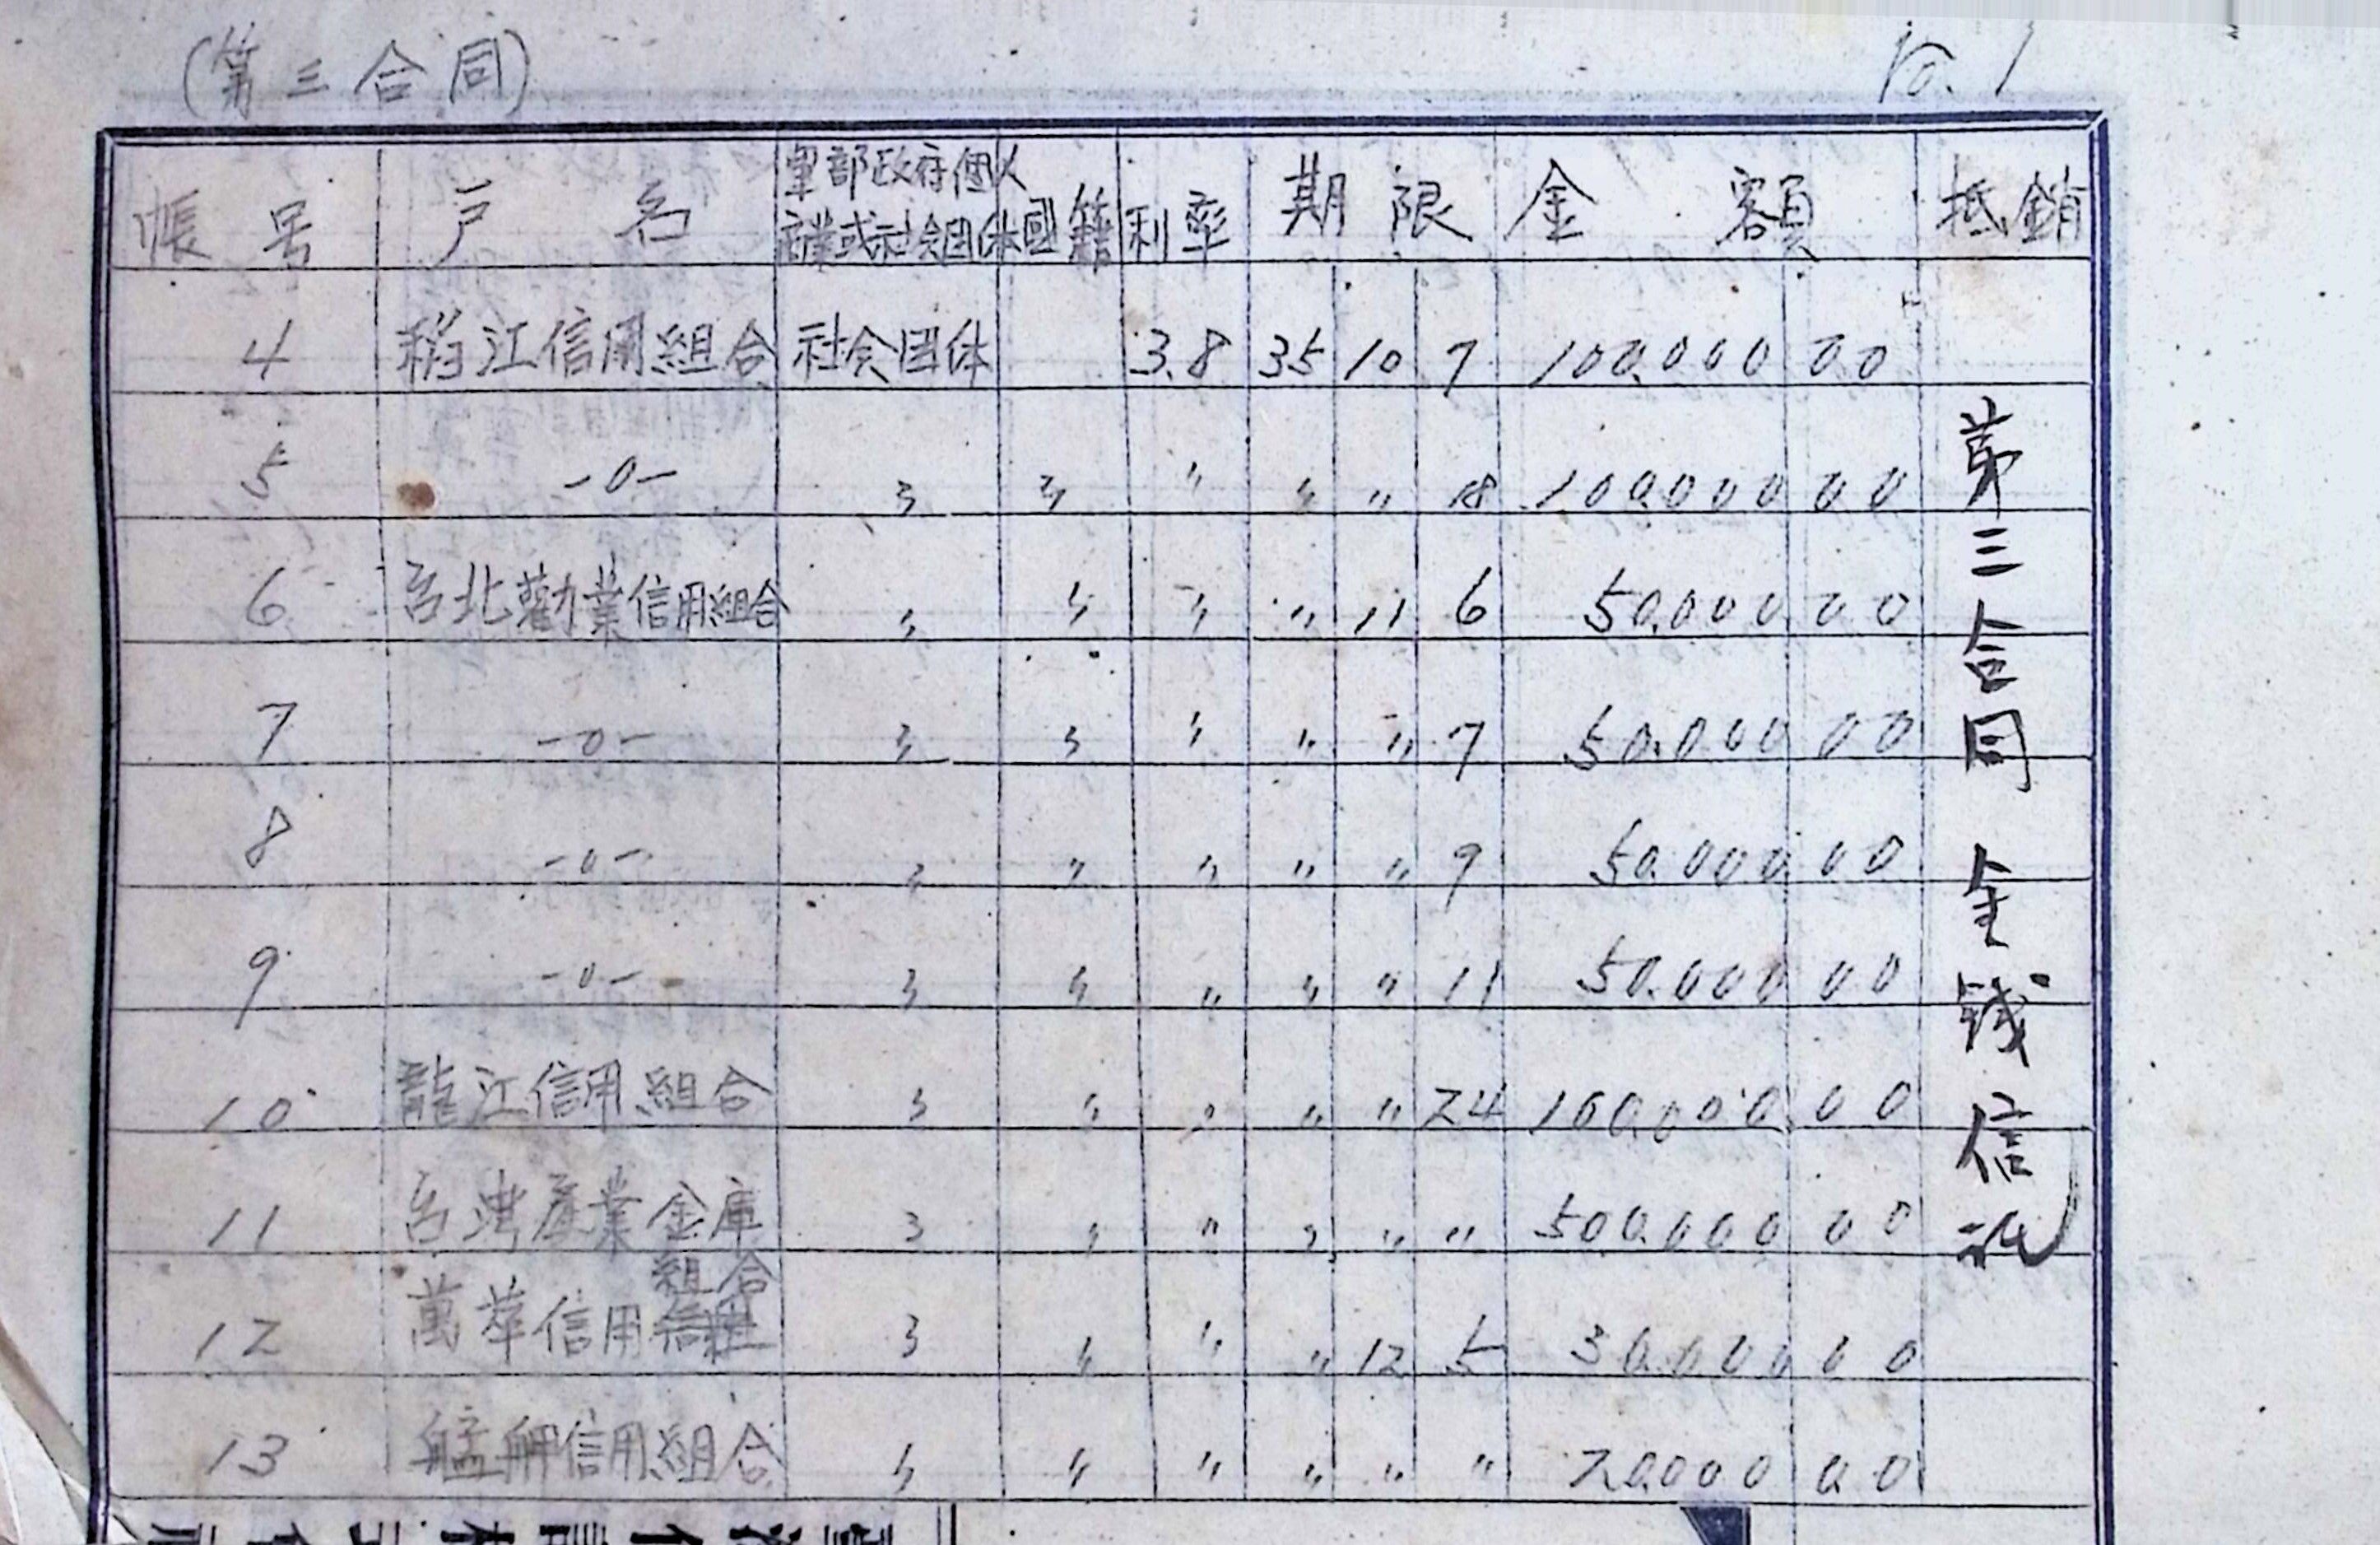 (第三合同)
No. 1
帳号 戸名 軍部政府個人 國籍 利率 期限 金額 抵銷
或社会团体
4 稻江信用組合 社会团体 3.8 35 10 7 100.000 00
5 -0- 〃 〃 〃 〃 〃 18 100.000 00
6 台北勸業信用組合 〃 〃 〃 〃 11 6 50.000 00
7 -0- 〃 〃 〃 〃 〃 7 50.000 00
8 -0- 〃 〃 〃 〃 〃 9 50.000 00
9 -0- 〃 〃 〃 〃 〃 11 50.000 00
10 龍江信用組合 〃 〃 〃 〃 〃 24 100.000 00
11 台湾産業金庫 〃 〃 〃 〃 〃 〃 500.000 00
12 萬華信用組合 〃 〃 〃 〃 12 5 30.000 00
13 艋舺信用組合 〃 〃 〃 〃 〃 〃 20.000 00
第三合同金錢信託